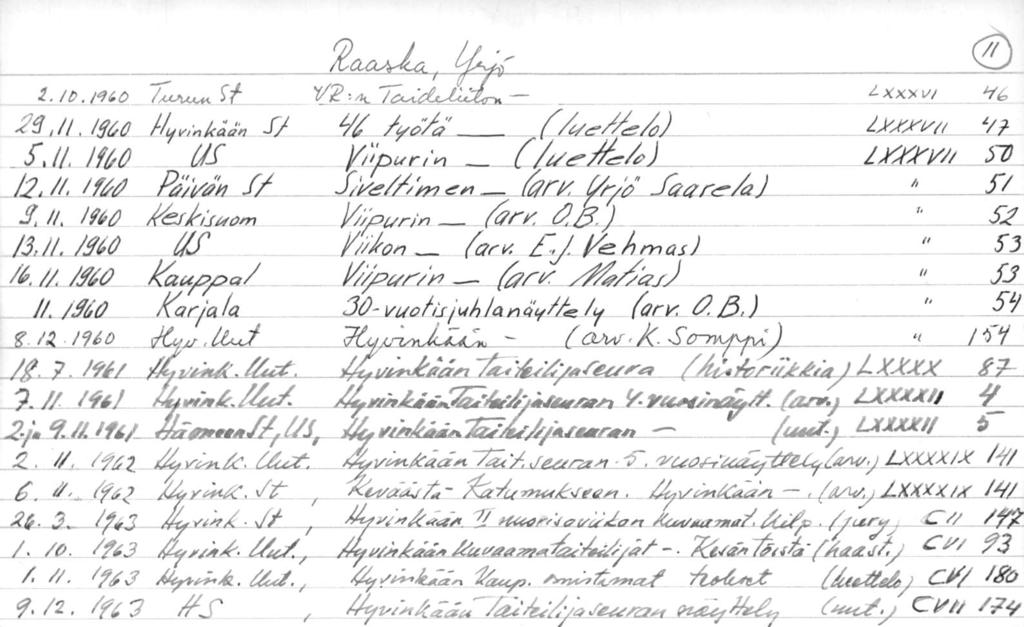 Raaska, Yrjö 11
2.10.1960 Turun St VR:n Taideliiton — LXXXVI 46
29.11.1960 Hyvinkään St 46 työtä — (luettelo) LXXXVII 47
5.11.1960 US Viipurin — (luettelo) LXXXVII 50
12.11.1960 Päivän St Siveltimen — (arv. Yrjö Saarela) " 51
9.11.1960 Keskisuom Viipurin — (arv. O.B.) " 52
13.11.1960 US Viikon — (arv. E.J. Vehmas) " 53
16.11.1960 Kauppal Viipurin — (arv. Matias) " 53
11.1960 Karjala 30-vuotisjuhlanäyttely (arv. O.B.) " 54
8.12.1960 Hyv. Uut Hyvinkään — (arv. K. Somppi) " 154
18.7.1961 Hyvink. Uut. Hyvinkään Taiteilijaseura (historiikkia) LXXXX 87
7.11.1961 Hyvink. Uut. Hyvinkään Taiteilijaseuran 4. vuosinäytt. (arv.) LXXXXII 4
2. ja 9.11.1961 Hämeen St, US, Hyvinkään Taiteilijaseuran — (uut.) LXXXXII 5
2.11.1962 Hyvink. Uut. Hyvinkään Tait.seuran 5. vuosinäyttely (arv.) LXXXXIX 141
6.11.1962 Hyvink. St, Keväästä Katumukseen. Hyvinkään —. (arv.) LXXXXIX 141
26.3.1963 Hyvink. St, Hyvinkään II nuorisoviikon kuvaamat. kilp. (jury) CII 147
1.10.1963 Hyvink. Uut., Hyvinkään Kuvaamataiteilijat —. Kesän töistä (haast.) CVI 93
1.11.1963 Hyvink. Uut., Hyvinkään Kaup. omistamat teokset (luettelo) CVI 180
9.12.1963 HS, Hyvinkään Taiteilijaseuran näyttely (uut.) CVII 174